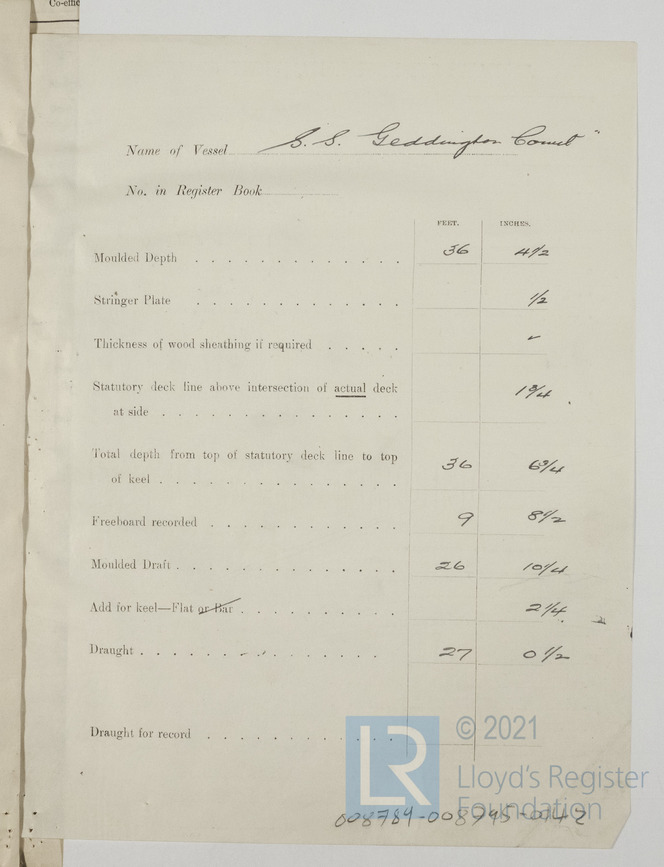 Co-effic
Name of Vessel S. S. Geddington Court"
No. in Register Book
FEET. INCHES.
Moulded Depth . . . . . . . . . . . . . 36 4 1/2
Stringer Plate . . . . . . . . . . . . . 1/2
Thickness of wood sheathing if required . . . . . ✓
Statutory deck line above intersection of actual deck
at side . . . . . . . . . . . . . . . 1 3/4
Total depth from top of statutory deck line to top
of keel . . . . . . . . . . . . . . . 36 6 3/4
Freeboard recorded . . . . . . . . . . . . 9 8 1/2
Moulded Draft . . . . . . . . . . . . . . 26 10 1/4
Add for keel—Flat or Bar . . . . . . . . . . 2 1/4
Draught . . . . . . . . . . . . . . . 27 0 1/2
Draught for record . . . . . . . . . . . .
LR © 2021
Lloyd's Register
Foundation
008784-008795-0142